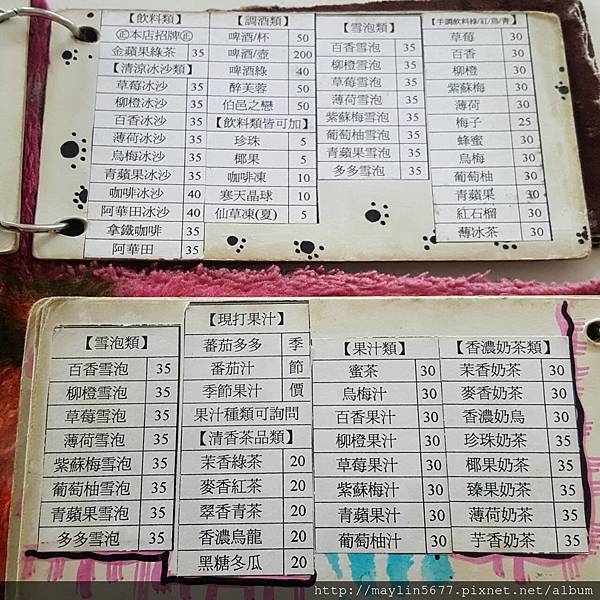 【飲料類】
㊣本店招牌㊣
金蘋果綠茶 35
【清涼冰沙類】
草莓冰沙 35
柳橙冰沙 35
百香冰沙 35
薄荷冰沙 35
烏梅冰沙 35
青蘋果冰沙 35
咖啡冰沙 40
阿華田冰沙 40
拿鐵咖啡 35
阿華田 35
【調酒類】
啤酒/杯 50
啤酒/壺 200
啤酒綠 40
醉芙蓉 50
伯邑之戀 50
【飲料類皆可加】
珍珠 5
椰果 5
咖啡凍 10
寒天晶球 10
仙草凍(夏) 5
【雪泡類】
百香雪泡 35
柳橙雪泡 35
草莓雪泡 35
薄荷雪泡 35
紫蘇梅雪泡 35
葡萄柚雪泡 35
青蘋果雪泡 35
多多雪泡 35
【手調飲料綠/紅/烏/青】
草莓 30
百香 30
柳橙 30
紫蘇梅 30
薄荷 30
梅子 25
蜂蜜 30
烏梅 30
葡萄柚 30
青蘋果 30
紅石榴 30
薄冰茶 30
【雪泡類】
百香雪泡 35
柳橙雪泡 35
草莓雪泡 35
薄荷雪泡 35
紫蘇梅雪泡 35
葡萄柚雪泡 35
青蘋果雪泡 35
多多雪泡 35
【現打果汁】
蕃茄多多 季
蕃茄汁 節
季節果汁 價
果汁種類可詢問
【清香茶品類】
茉香綠茶 20
麥香紅茶 20
翠香青茶 20
香濃烏龍 20
黑糖冬瓜 20
【果汁類】
蜜茶 30
烏梅汁 30
百香果汁 30
柳橙果汁 30
草莓果汁 30
紫蘇梅汁 30
青蘋果汁 30
葡萄柚汁 30
【香濃奶茶類】
茉香奶茶 30
麥香奶茶 30
香濃奶烏 30
珍珠奶茶 35
椰果奶茶 35
臻果奶茶 35
薄荷奶茶 35
芋香奶茶 35
http://maylin5677.pixnet.net/album